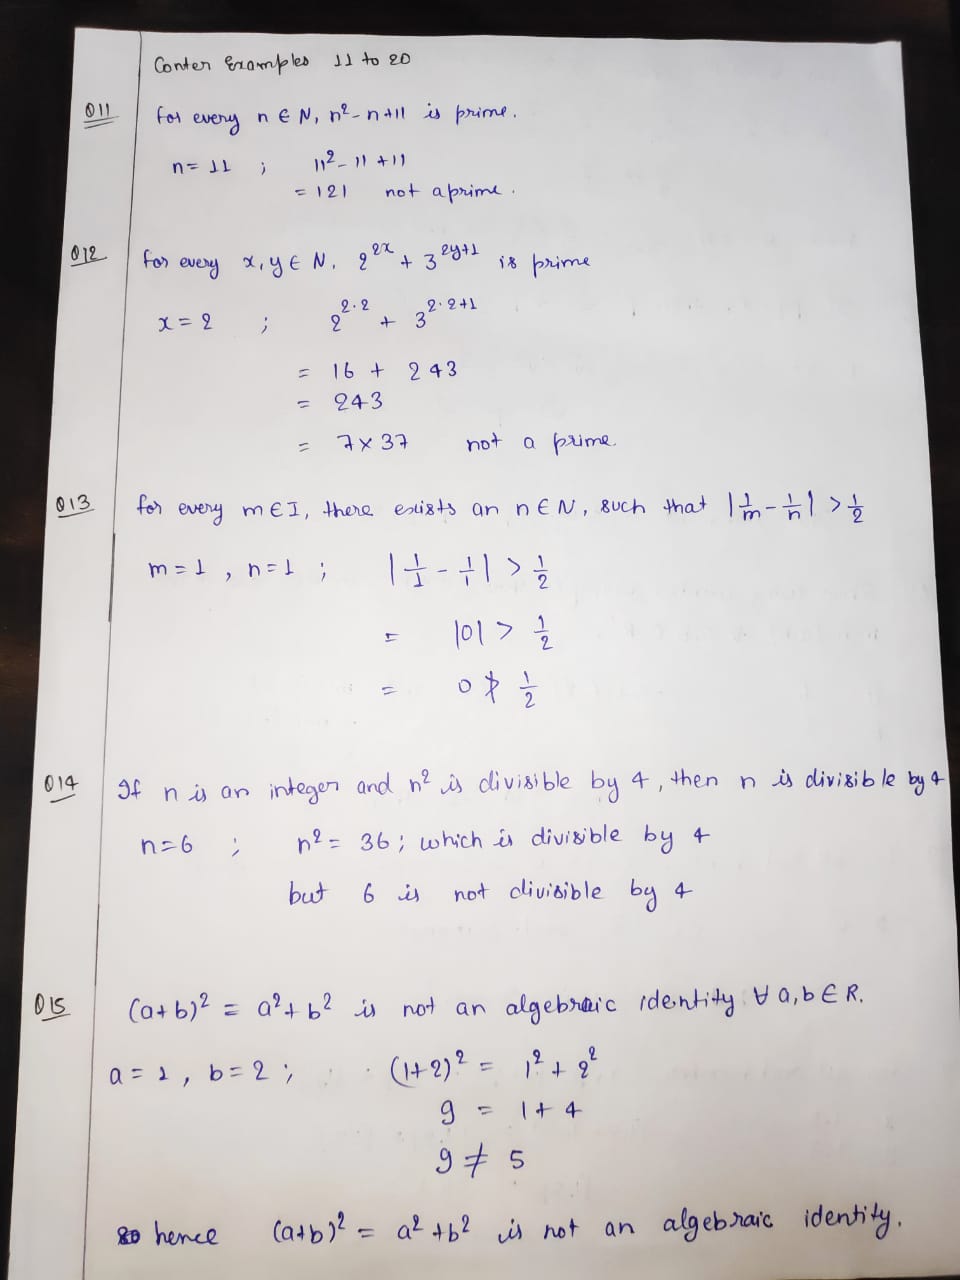 Conter Examples 11 to 20
Q11 for every n ∈ N, n² - n + 11 is prime.
n = 11 ; 11² - 11 + 11
= 121 not a prime.
Q12 for every x, y ∈ N, 2^2x + 3^2y+1 is prime
x = 2 ; 2^2·2 + 3^2·2+1
= 16 + 243
= 243
= 7 × 37 not a prime.
Q13 for every m ∈ I, there exists an n ∈ N, such that |1/m - 1/n| > 1/2
m = 1 , n = 1 ; |1/1 - 1/1| > 1/2
= |0| > 1/2
= 0 ≯ 1/2
Q14 If n is an integer and n² is divisible by 4, then n is divisible by 4
n = 6 ; n² = 36 ; which is divisible by 4
but 6 is not divisible by 4
Q15 (a+b)² = a² + b² is not an algebraic identity ∀ a, b ∈ R.
a = 1 , b = 2 ; (1+2)² = 1² + 2²
9 = 1 + 4
9 ≠ 5
hence (a+b)² = a² + b² is not an algebraic identity.